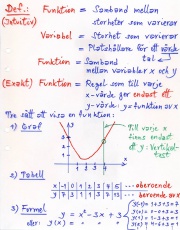 Def.: Funktion = Samband mellan
(Intuitiv) storheter som varierar
Variabel = Storhet som varierar
= Platshållare för ett värde
tal
Funktion = Samband
mellan variabler x och y
(Exakt) Funktion = Regel som till varje
x-värde ger endast ett
y-värde: y = funktion av x
Tre sätt att visa en funktion:
1) Graf
Till varje x
finns endast
ett y: Vertikal-
test
2) Tabell
x -1 0 1 2 3 4 5
oberoende
y
beroende av x
3) Formel
y = x² - 3x + 3
eller: y(x) =